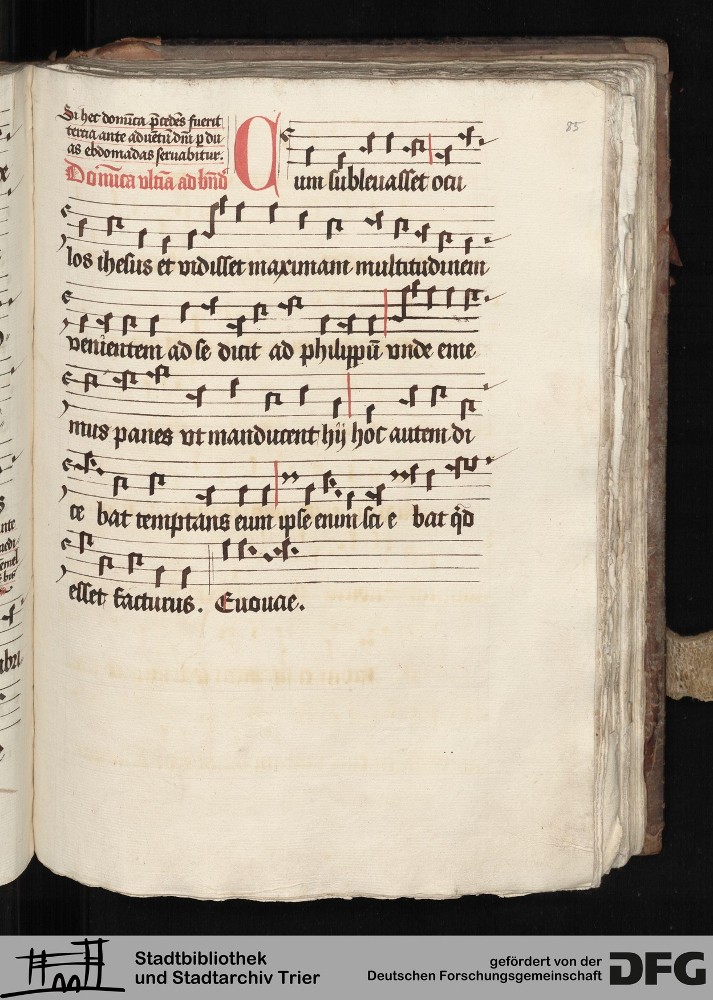 Si hec domīca p̄cedēs fuerit
tercia ante aduētū dn̄i p du
as ebdomadas seruabitur.
Domīca vltīa ad bn̄d
85
Cum subleuasset ocu
los ihesus et vidisset maximam multitudinem
venientem ad se dicit ad philippū vnde eme
mus panes vt manducent hij hoc autem di
ce bat temptans eum ipse enim sci e bat qd
esset facturus. Euouae.
Stadtbibliothek
und Stadtarchiv Trier
gefördert von der
Deutschen Forschungsgemeinschaft
DFG